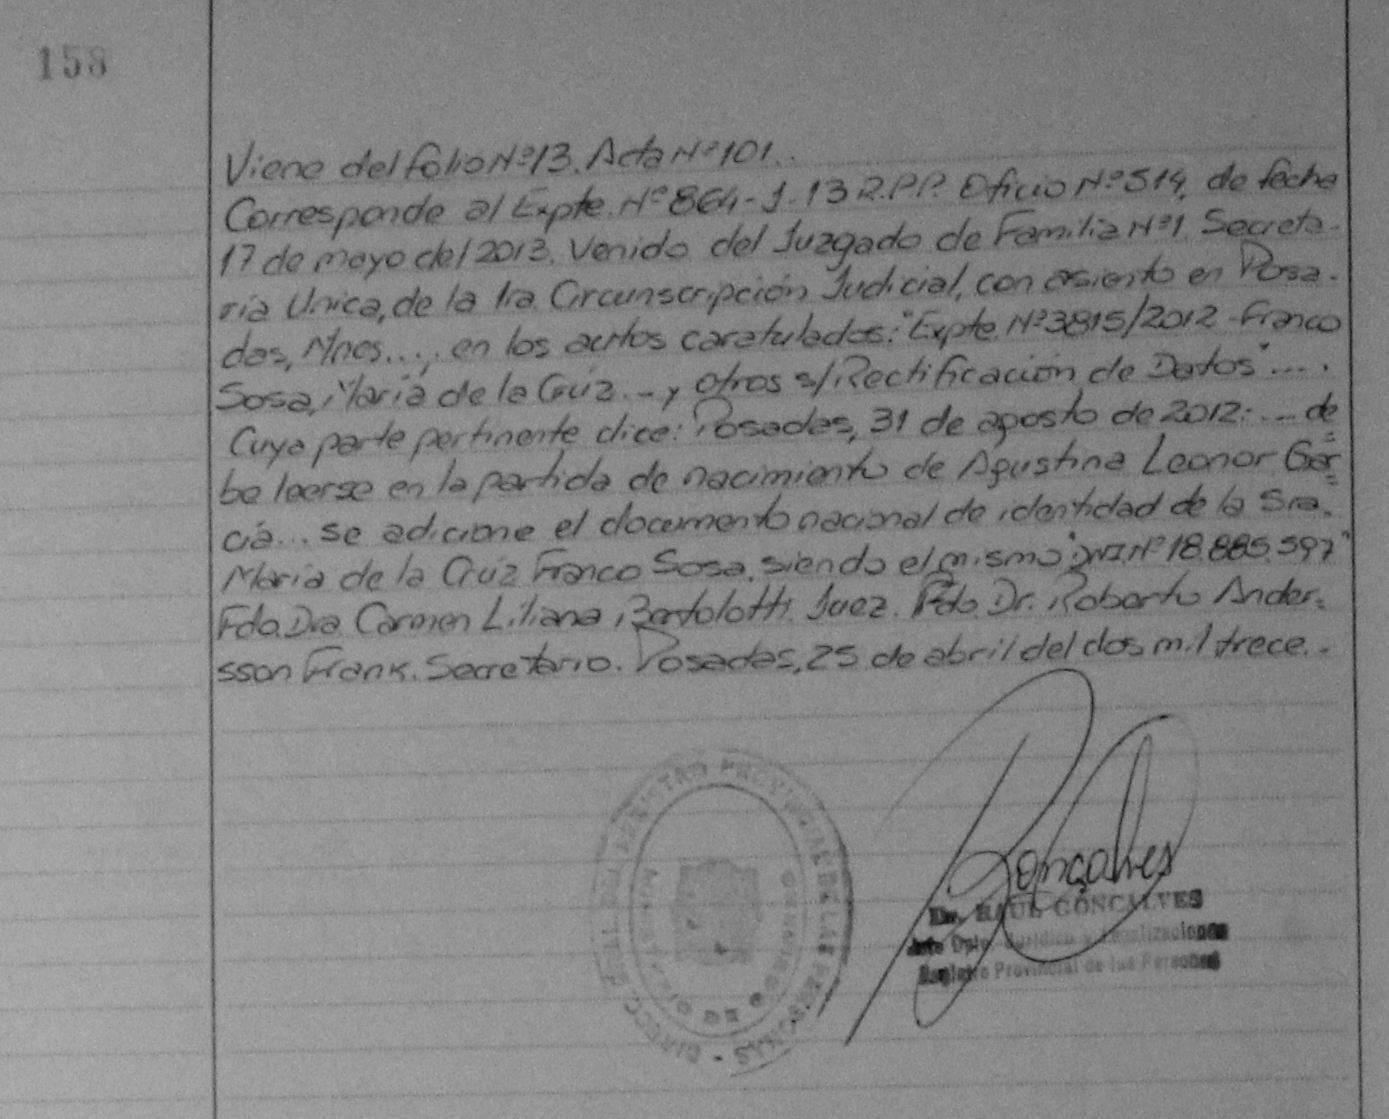 158
Viene del folio Nº 13. Acta Nº 101..
Corresponde al Expte. Nº 864-J-13 R.P.P. Oficio Nº 514, de fecha
17 de mayo del 2013. Venido del Juzgado de Familia Nº 1. Secreta-
ría Unica, de la 1ra. Circunscripción Judicial, con asiento en Posa-
das, Mnes..., en los autos caratulados: "Expte. Nº 3815/2012 - Franco
Sosa, María de la Cruz... y otros s/ Rectificación de Datos"....
Cuya parte pertinente dice: Posadas, 31 de agosto de 2012:... de
be leerse en la partida de nacimiento de Agustina Leonor Gar=
cía... se adicione el documento nacional de identidad de la Sra.
María de la Cruz Franco Sosa, siendo el mismo "DNI. Nº 18.885.597"
Fdo. Dra. Carmen Liliana Bertolotti. Juez. Fdo. Dr. Roberto Ander=
sson Frank. Secretario. Posadas, 25 de abril del dos mil trece..
DIRECC. GRAL. DEL REGISTRO PROVINCIAL DE LAS PERSONAS -
Gonçalves
Dr. RAUL GONCALVES
Jefe Dpto. Jurídico y Legalizaciones
Registro Provincial de las Personas